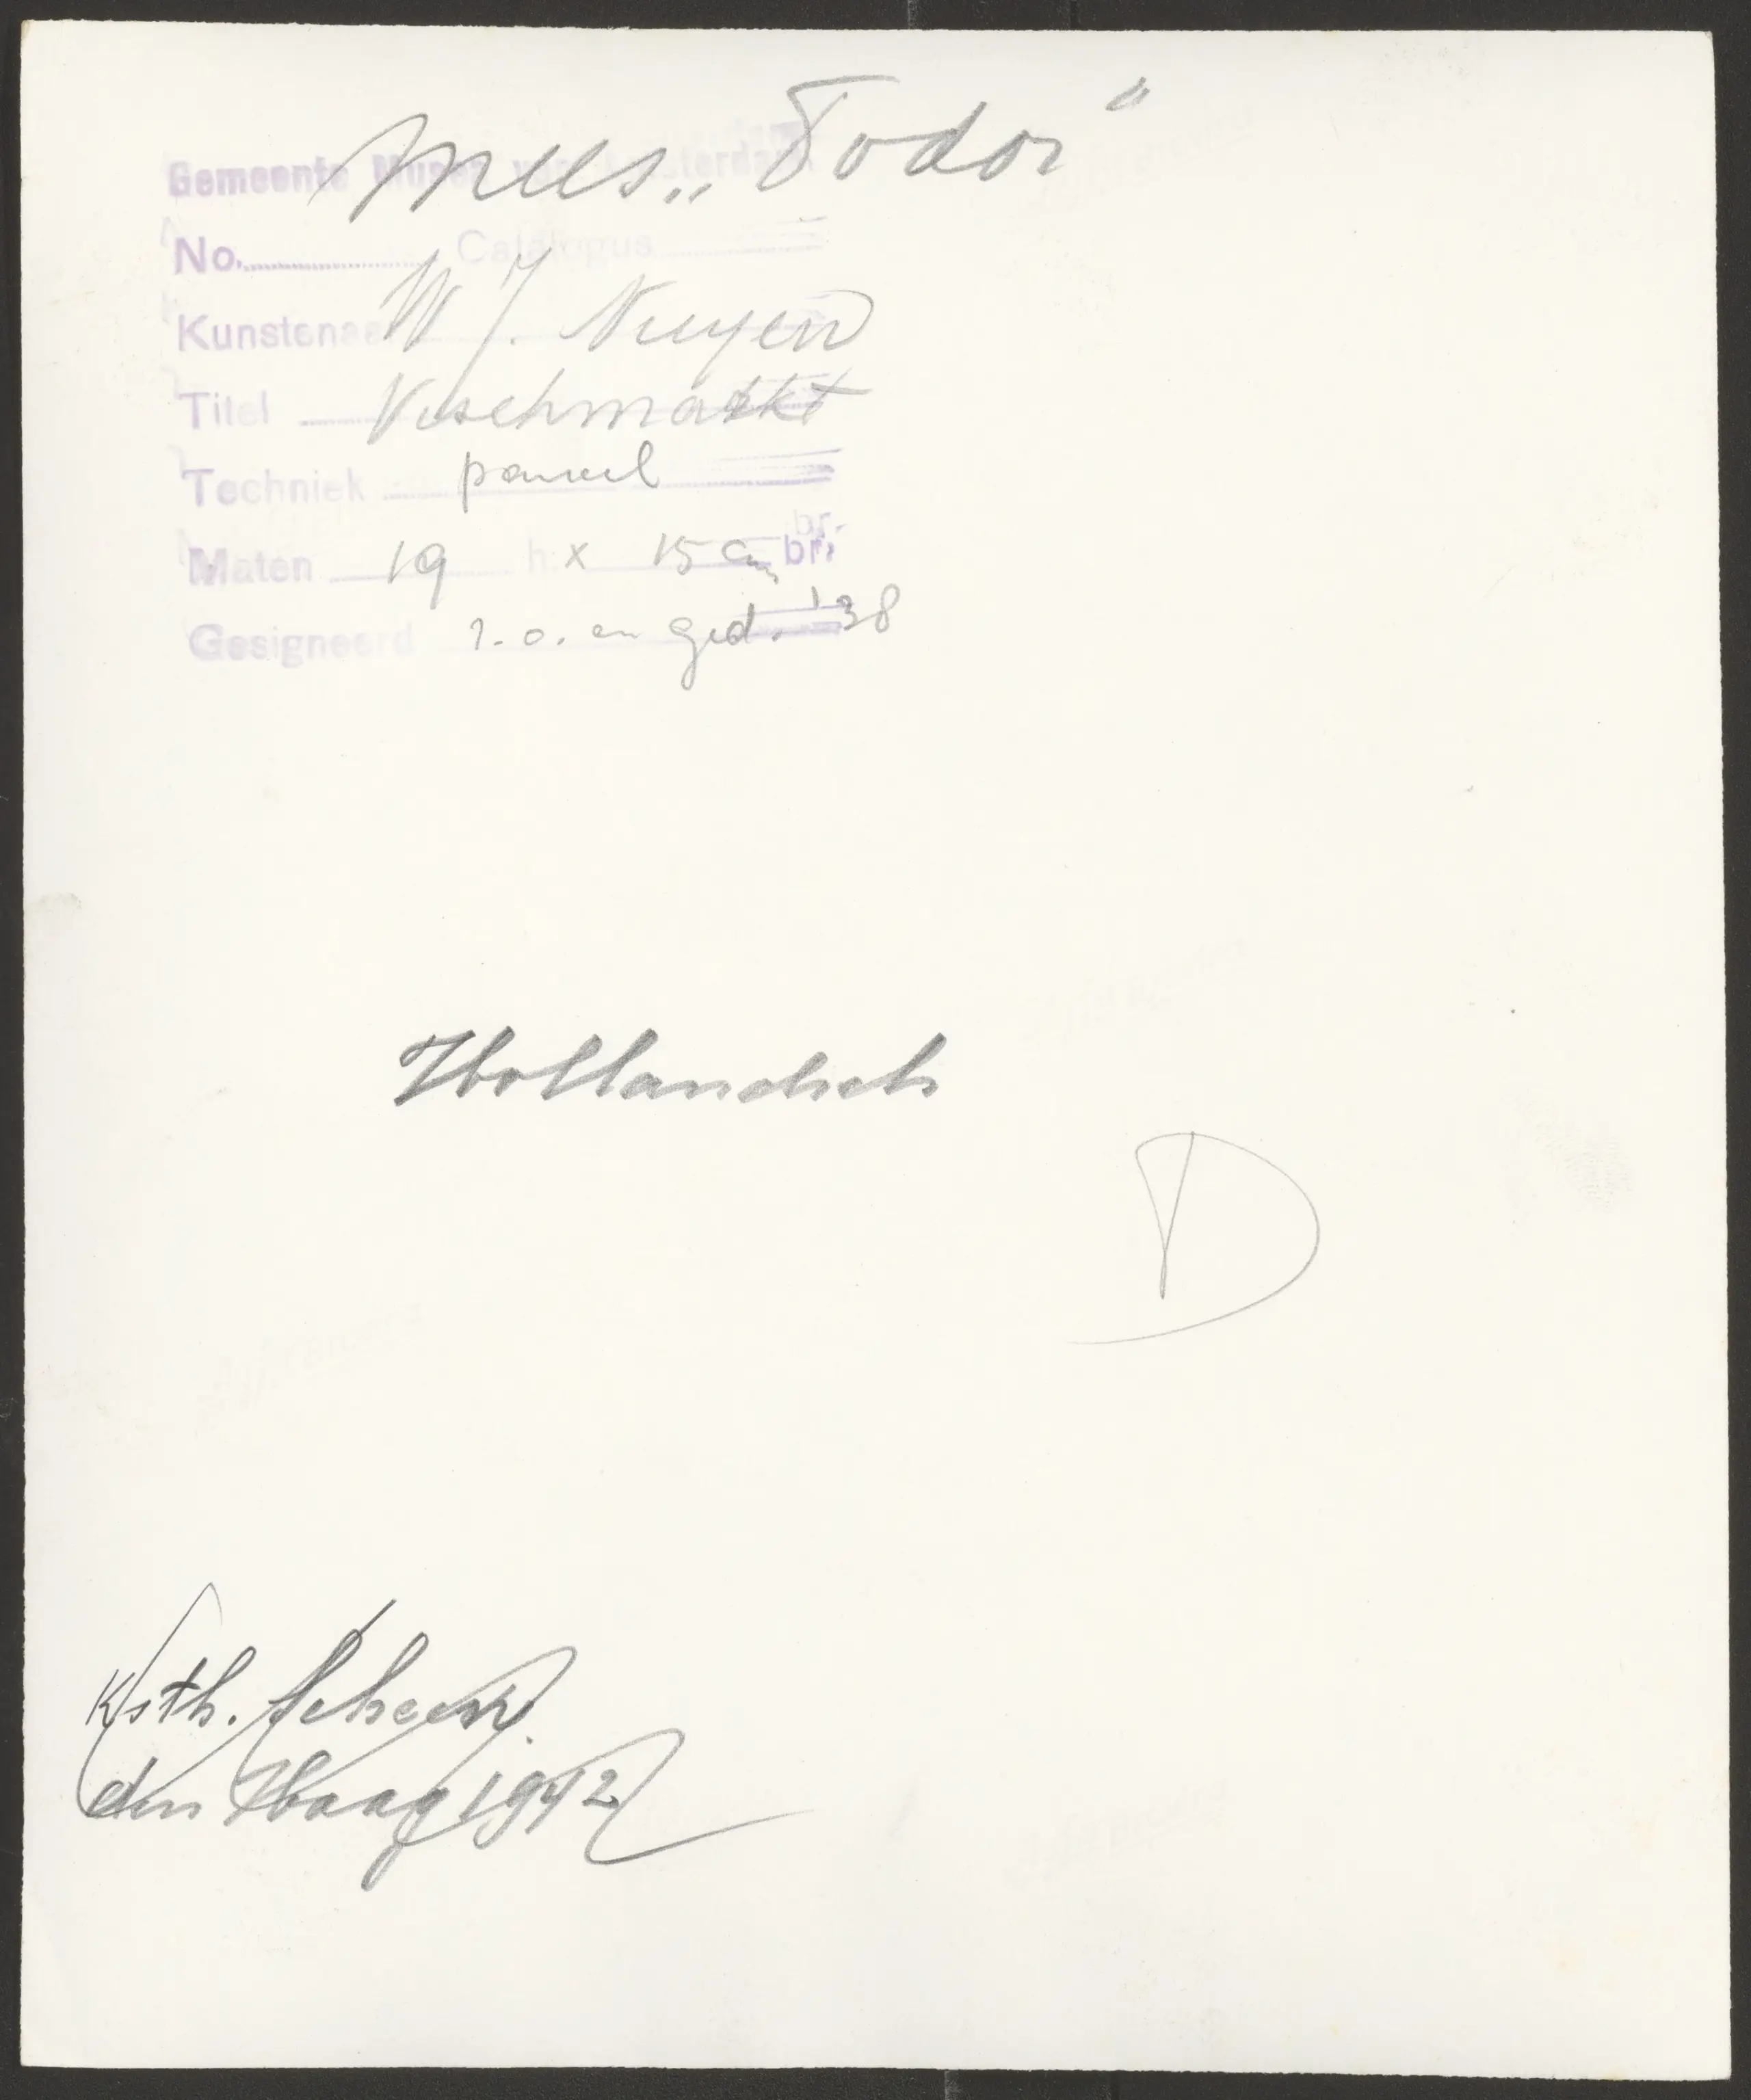 Mus. „Fodor"
Gemeente Musea van Amsterdam
No. Catalogus
Kunstenaar W. J. Nuyen
Titel Vischmarkt
Techniek paneel
br.
Maten 19 h. x 15 cm br.
Gesigneerd r. o. en ged. '38
Hollandsch
D
Ksth. Scheen
den Haag 1942